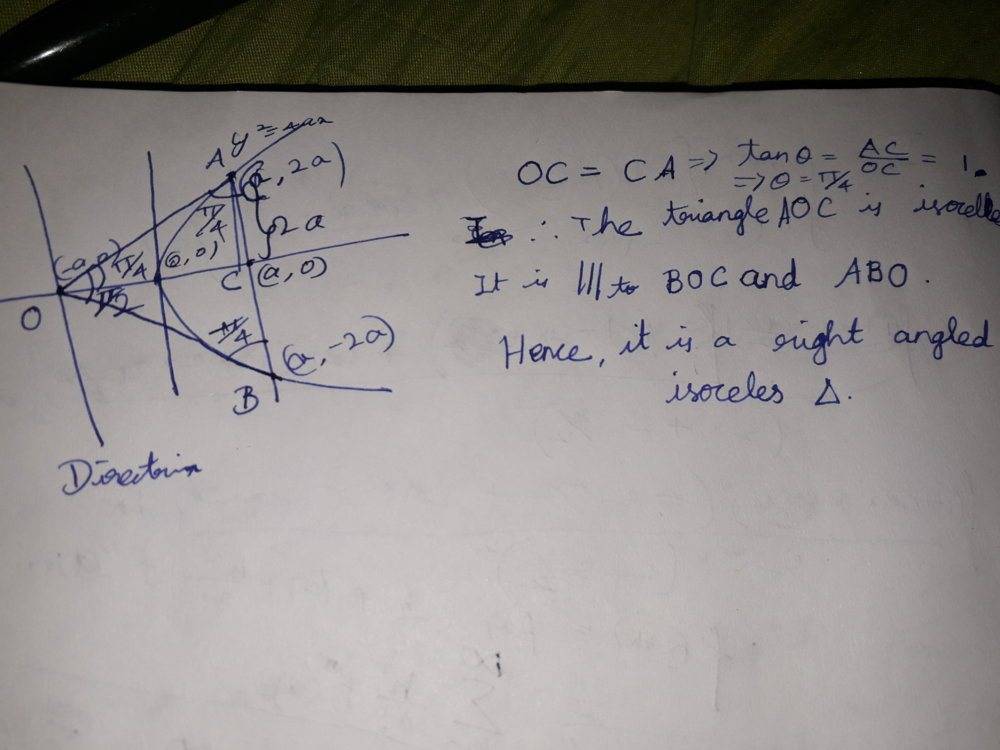 A y² = 4ax
(a, 2a)
π/4
2a
(-a, 0)
π/4
(0, 0)
C (a, 0)
O
π/2
π/4
(a, -2a)
B
Directrix
OC = CA => tanθ = AC/OC = 1.
=> θ = π/4
∴ The triangle AOC is
It is ||| to BOC and ABO.
Hence, it is a right angled
isoceles Δ.